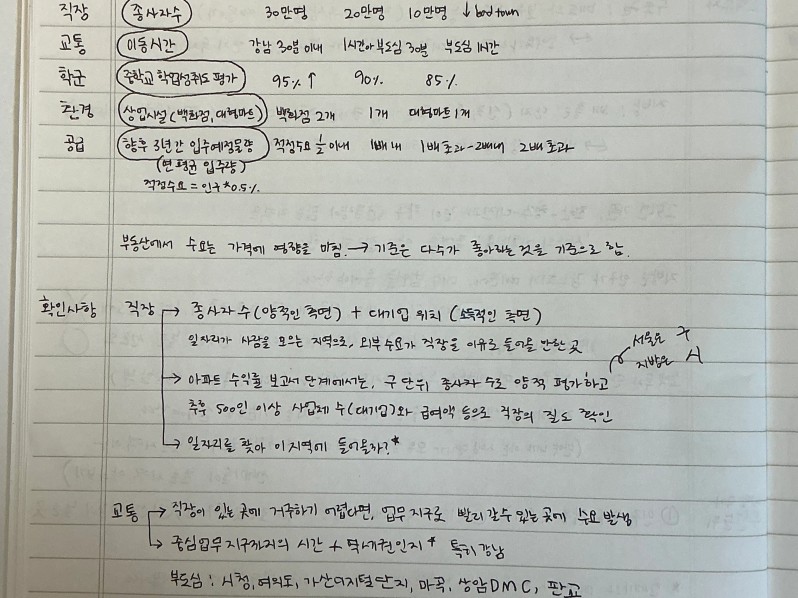 직장 종사자수 30만명 20만명 10만명 ↓ bed town
교통 이동시간 강남 30분 이내 1시간이내 부도심 30분 부도심 1시간
학군 중학교 학업성취도 평가 95%↑ 90% 85%
환경 상업시설(백화점, 대형마트) 백화점 2개 1개 대형마트 1개
공급 향후 3년간 입주예정물량 적정수요 ½ 이내 1배 내 1배 초과~2배내 2배 초과
(연 평균 입주량)
적정수요 = 인구*0.5%
부동산에서 수요는 가격에 영향을 미침. → 기준은 다수가 좋아하는 것을 기준으로 함.
확인사항 직장 → 종사자 수(양적인 측면) + 대기업 위치 (소득적인 측면)
일자리가 사람을 모으는 지역으로, 외부 수요가 직장을 이유로 들어올 만한 곳
서울은 구
지방은 시
→ 아파트 수익률 보고서 단계에서는, 구 단위 종사자 수로 양적 평가하고
추후 500인 이상 사업체 수(대기업)와 급여액 등으로 직장의 질도 확인
→ 일자리를 찾아 이 지역에 들어올까?*
교통 → 직장이 있는 곳에 거주하기 어렵다면, 업무지구로 빨리 갈 수 있는 곳에 수요 발생
→ 중심업무지구까지의 시간 + 역세권인지* 특히 강남
부도심 : 시청, 여의도, 가산디지털단지, 마곡, 상암DMC, 판교